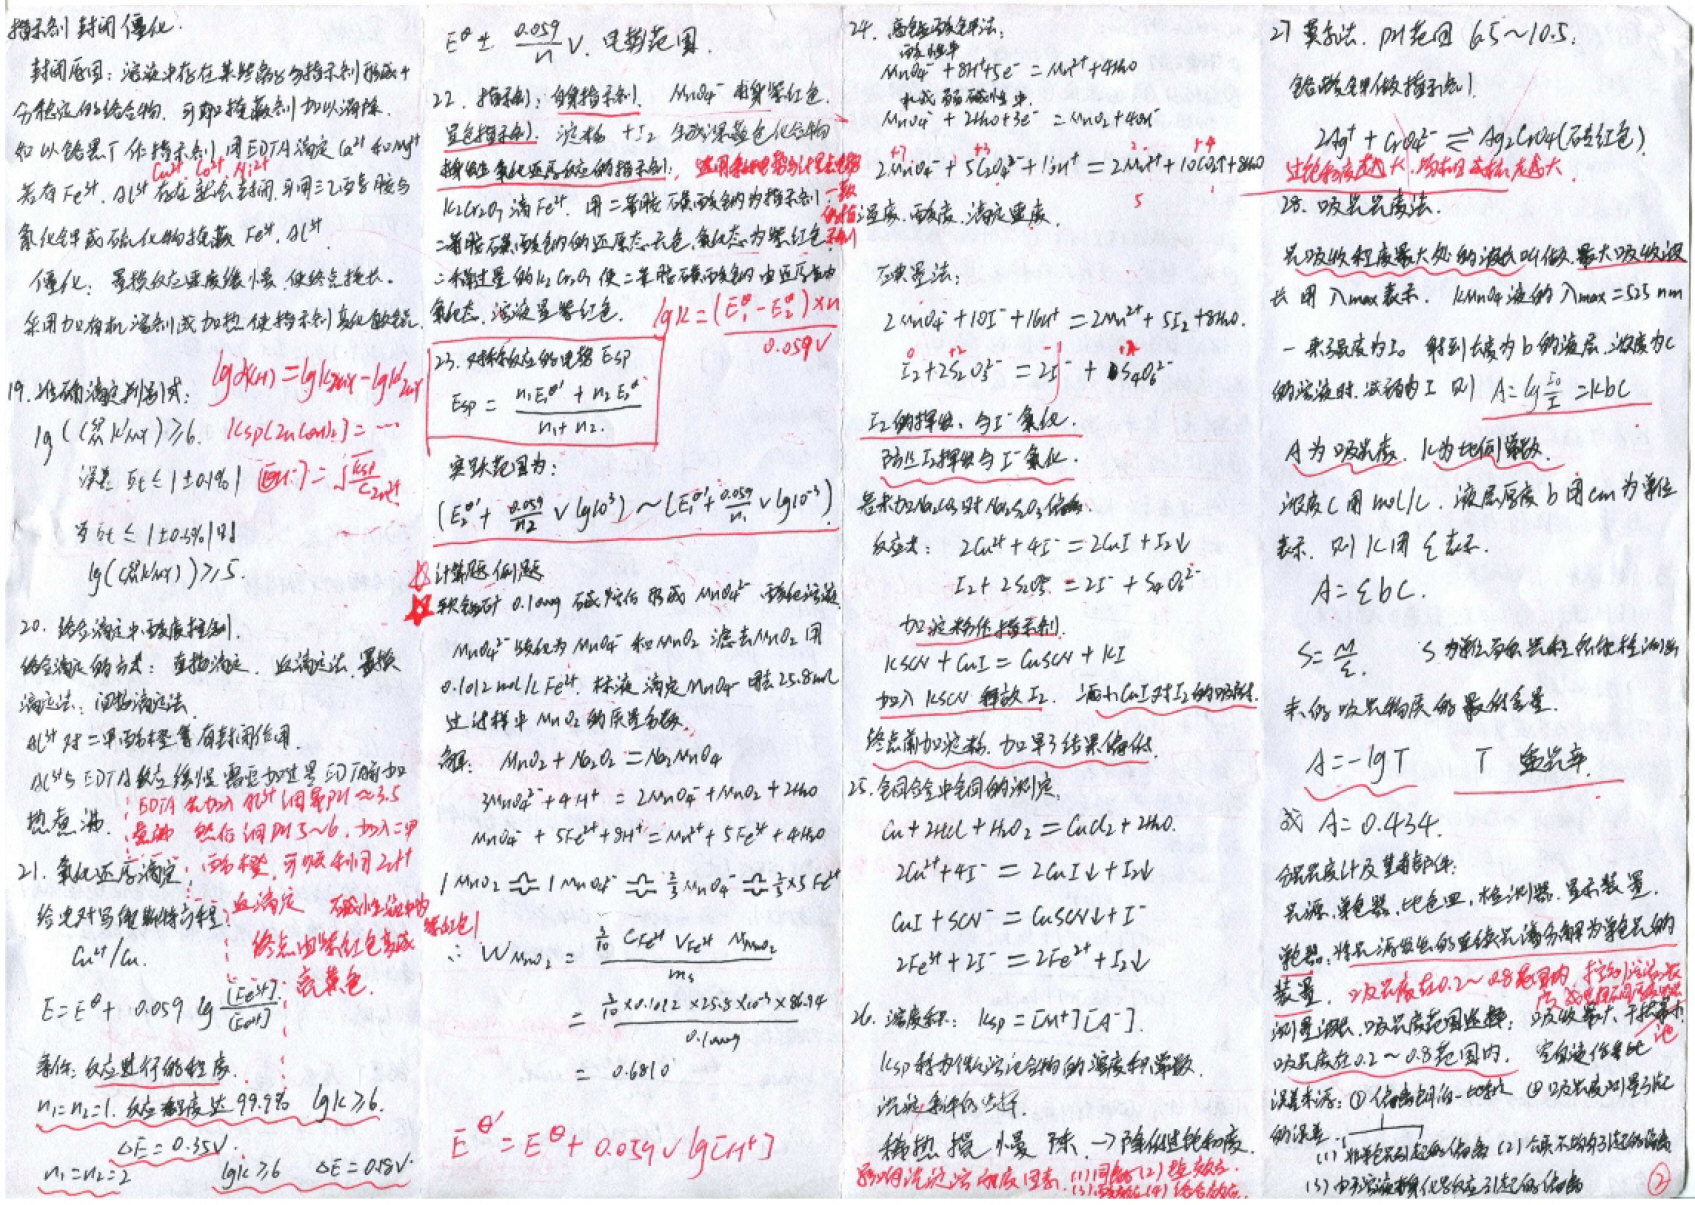 指示剂封闭僵化.
封闭原因: 溶液中存在某些离子与指示剂形成十
分稳定的络合物. 可加掩蔽剂加以消除.
如以铬黑T作指示剂 用EDTA滴定 Ca²⁺和Mg²⁺
Cu²⁺ Co²⁺ Ni²⁺
若有Fe³⁺. Al³⁺存在就会封闭. 可用三乙醇胺与
氰化钾或硫化物掩蔽 Fe³⁺. Al³⁺.
僵化: 置换反应速度缓慢 使终点拖长.
采用加有机溶剂或加热 使指示剂
lgα(H) = lgKZnY - lgK'ZnY
19. 准确滴定判别式:
lg(C K'MY) ≥ 6. Ksp(Zn(OH)₂) = ···
误差 Et ≤ |±0.1%| [OH⁻] = √(Ksp/CZn²⁺)
当 Et ≤ |±0.3%|时
lg(C K'MY) ≥ 5.
20. 络合滴定中酸度控制.
络合滴定的方式: 直接滴定. 返滴定法. 置换
滴定法. 间接滴定法
Al³⁺对二甲酚橙有封闭作用.
Al³⁺与EDTA反应缓慢 需要加过量EDTA并加
热煮沸.
EDTA 先加入 Al³⁺ 调节PH≈3.5
煮沸 然后调PH 5~6. 加入二甲
酚橙, 可以利用Zn²⁺
返滴定
终点由紫红色变成
亮黄色.
21. 氧化还原滴定
给电对写能斯特方程:
Cu²⁺/Cu.
E = E^θ + 0.059 lg [Fe³⁺]/[Fe²⁺]
条件: 反应进行的程度.
n₁=n₂=1. 反应程度达 99.9% lgK ≥ 6.
ΔE = 0.35V.
n₁=n₂=2 lgK ≥ 6 ΔE = 0.18V.
E^θ ± 0.059/n V. 电势范围.
22. 指示剂: 自身指示剂. MnO₄⁻ 自身紫红色.
显色指示剂. 淀粉 + I₂ 生成深蓝色化合物
氧化还原反应的指示剂:
K₂Cr₂O₇ 滴 Fe²⁺. 用二苯胺磺酸钠为指示剂
二苯胺磺酸钠的还原态无色, 氧化态为紫红色.
二稍过量的K₂Cr₂O₇ 使二苯胺磺酸钠由还原态为
氧化态, 溶液呈紫红色. lgK = (E₁^θ - E₂^θ)×n / 0.059V
23. 对称反应的电势 Esp
Esp = (n₁E₁^θ' + n₂E₂^θ') / (n₁+n₂).
突跃范围为:
(E₂^θ' + 0.059/n₂ V lg10³) ~ (E₁^θ' + 0.059/n₁ V lg10⁻³)
计算题例题
软锰矿 0.1000g 碱熔后形成 MnO₄²⁻ 酸化溶液
MnO₄²⁻ 歧化为 MnO₄⁻ 和 MnO₂ 滤去 MnO₂ 用
0.1012 mol/L Fe²⁺. 标液滴定 MnO₄⁻ 用去 25.8mL
过试样中 MnO₂ 的质量分数.
解: MnO₂ + Na₂O₂ = Na₂MnO₄
3MnO₄²⁻ + 4H⁺ = 2MnO₄⁻ + MnO₂ + 2H₂O
MnO₄⁻ + 5Fe²⁺ + 8H⁺ = Mn²⁺ + 5Fe³⁺ + 4H₂O
1 MnO₂ ≏ 1 MnO₄²⁻ ≏ 2/3 MnO₄⁻ ≏ 2/3 × 5 Fe²⁺
∴ W MnO₂ = 3/10 CFe²⁺ VFe²⁺ MMnO₂ / ms
= 3/10 × 0.1012 × 25.8 × 10⁻³ × 86.94 / 0.1000g
= 0.6810
E^θ' = E^θ + 0.059V lg[H⁺]
24. 高锰酸钾法:
酸性中
MnO₄⁻ + 8H⁺ + 5e⁻ = Mn²⁺ + 4H₂O
中或弱碱性中.
MnO₄⁻ + 2H₂O + 3e⁻ = MnO₂ + 4OH⁻
2MnO₄⁻ + 5C₂O₄²⁻ + 16H⁺ = 2Mn²⁺ + 10CO₂↑ + 8H₂O
温度. 酸度. 滴定速度.
碘量法:
2MnO₄⁻ + 10I⁻ + 16H⁺ = 2Mn²⁺ + 5I₂ + 8H₂O.
I₂ + 2S₂O₃²⁻ = 2I⁻ + S₄O₆²⁻
I₂的挥发. 与I⁻氧化.
防止I₂挥发与I⁻氧化.
反应式: 2Cu²⁺ + 4I⁻ = 2CuI + I₂↓
I₂ + 2S₂O₃²⁻ = 2I⁻ + S₄O₆²⁻
加淀粉作指示剂.
KSCN + CuI = CuSCN + KI
加入 KSCN 释放 I₂. 减小CuI对I₂的吸附.
终点前加淀粉. 加早了结果偏低.
25. 铜合金中铜的测定.
Cu + 2HCl + H₂O₂ = CuCl₂ + 2H₂O.
2Cu²⁺ + 4I⁻ = 2CuI↓ + I₂↓
CuI + SCN⁻ = CuSCN↓ + I⁻
2Fe³⁺ + 2I⁻ = 2Fe²⁺ + I₂↓
26. 溶度积: Ksp = [M⁺][A⁻].
Ksp称为难溶化合物的溶度积常数.
沉淀条件的选择.
稀 热 搅 慢 陈 → 降低过饱和度.
影响沉淀溶解度因素. (1)同离子 (2)盐效应.
(3)酸效应 (4)络合效应.
27 莫尔法. PH范围 6.5~10.5.
铬酸钾做指示剂
2Ag⁺ + CrO₄²⁻ ⇌ Ag₂CrO₄(砖红色)
28. 吸光光度法.
光吸收程度最大处的波长叫做 最大吸收波
长 用 λmax表示. KMnO₄液的 λmax = 525 nm
一束强度为I₀ 射到长度为b的液层. 浓度为C
的溶液时. 减弱为I 则 A = lg I₀/I = Kbc
A为吸光度. K为比例常数.
浓度C用mol/L. 液层厚度b用cm为单位
表示. 则K用ε表示.
A = εbC.
S = M/ε.
来的吸光物质的最低含量.
A = -lgT T 透光率.
或 A = 0.434.
分光光度计及其部件:
光源. 单色器. 比色皿. 检测器. 显示装置.
单色器: 将光源发出的连续光谱分解为单色光的
装置. 吸光度在0.2~0.8范围内
测量波长. 吸光度范围选择: 吸收最大、干扰最小
吸光度在0.2~0.8范围内.
误差来源: ① 偏离朗伯-比耳 ② 吸光度测量引起
的误差.
(1) 非单色光引起的偏离 (2) 介质不均匀引起的偏离
(3) 由于溶液本身化学反应引起的偏离
②